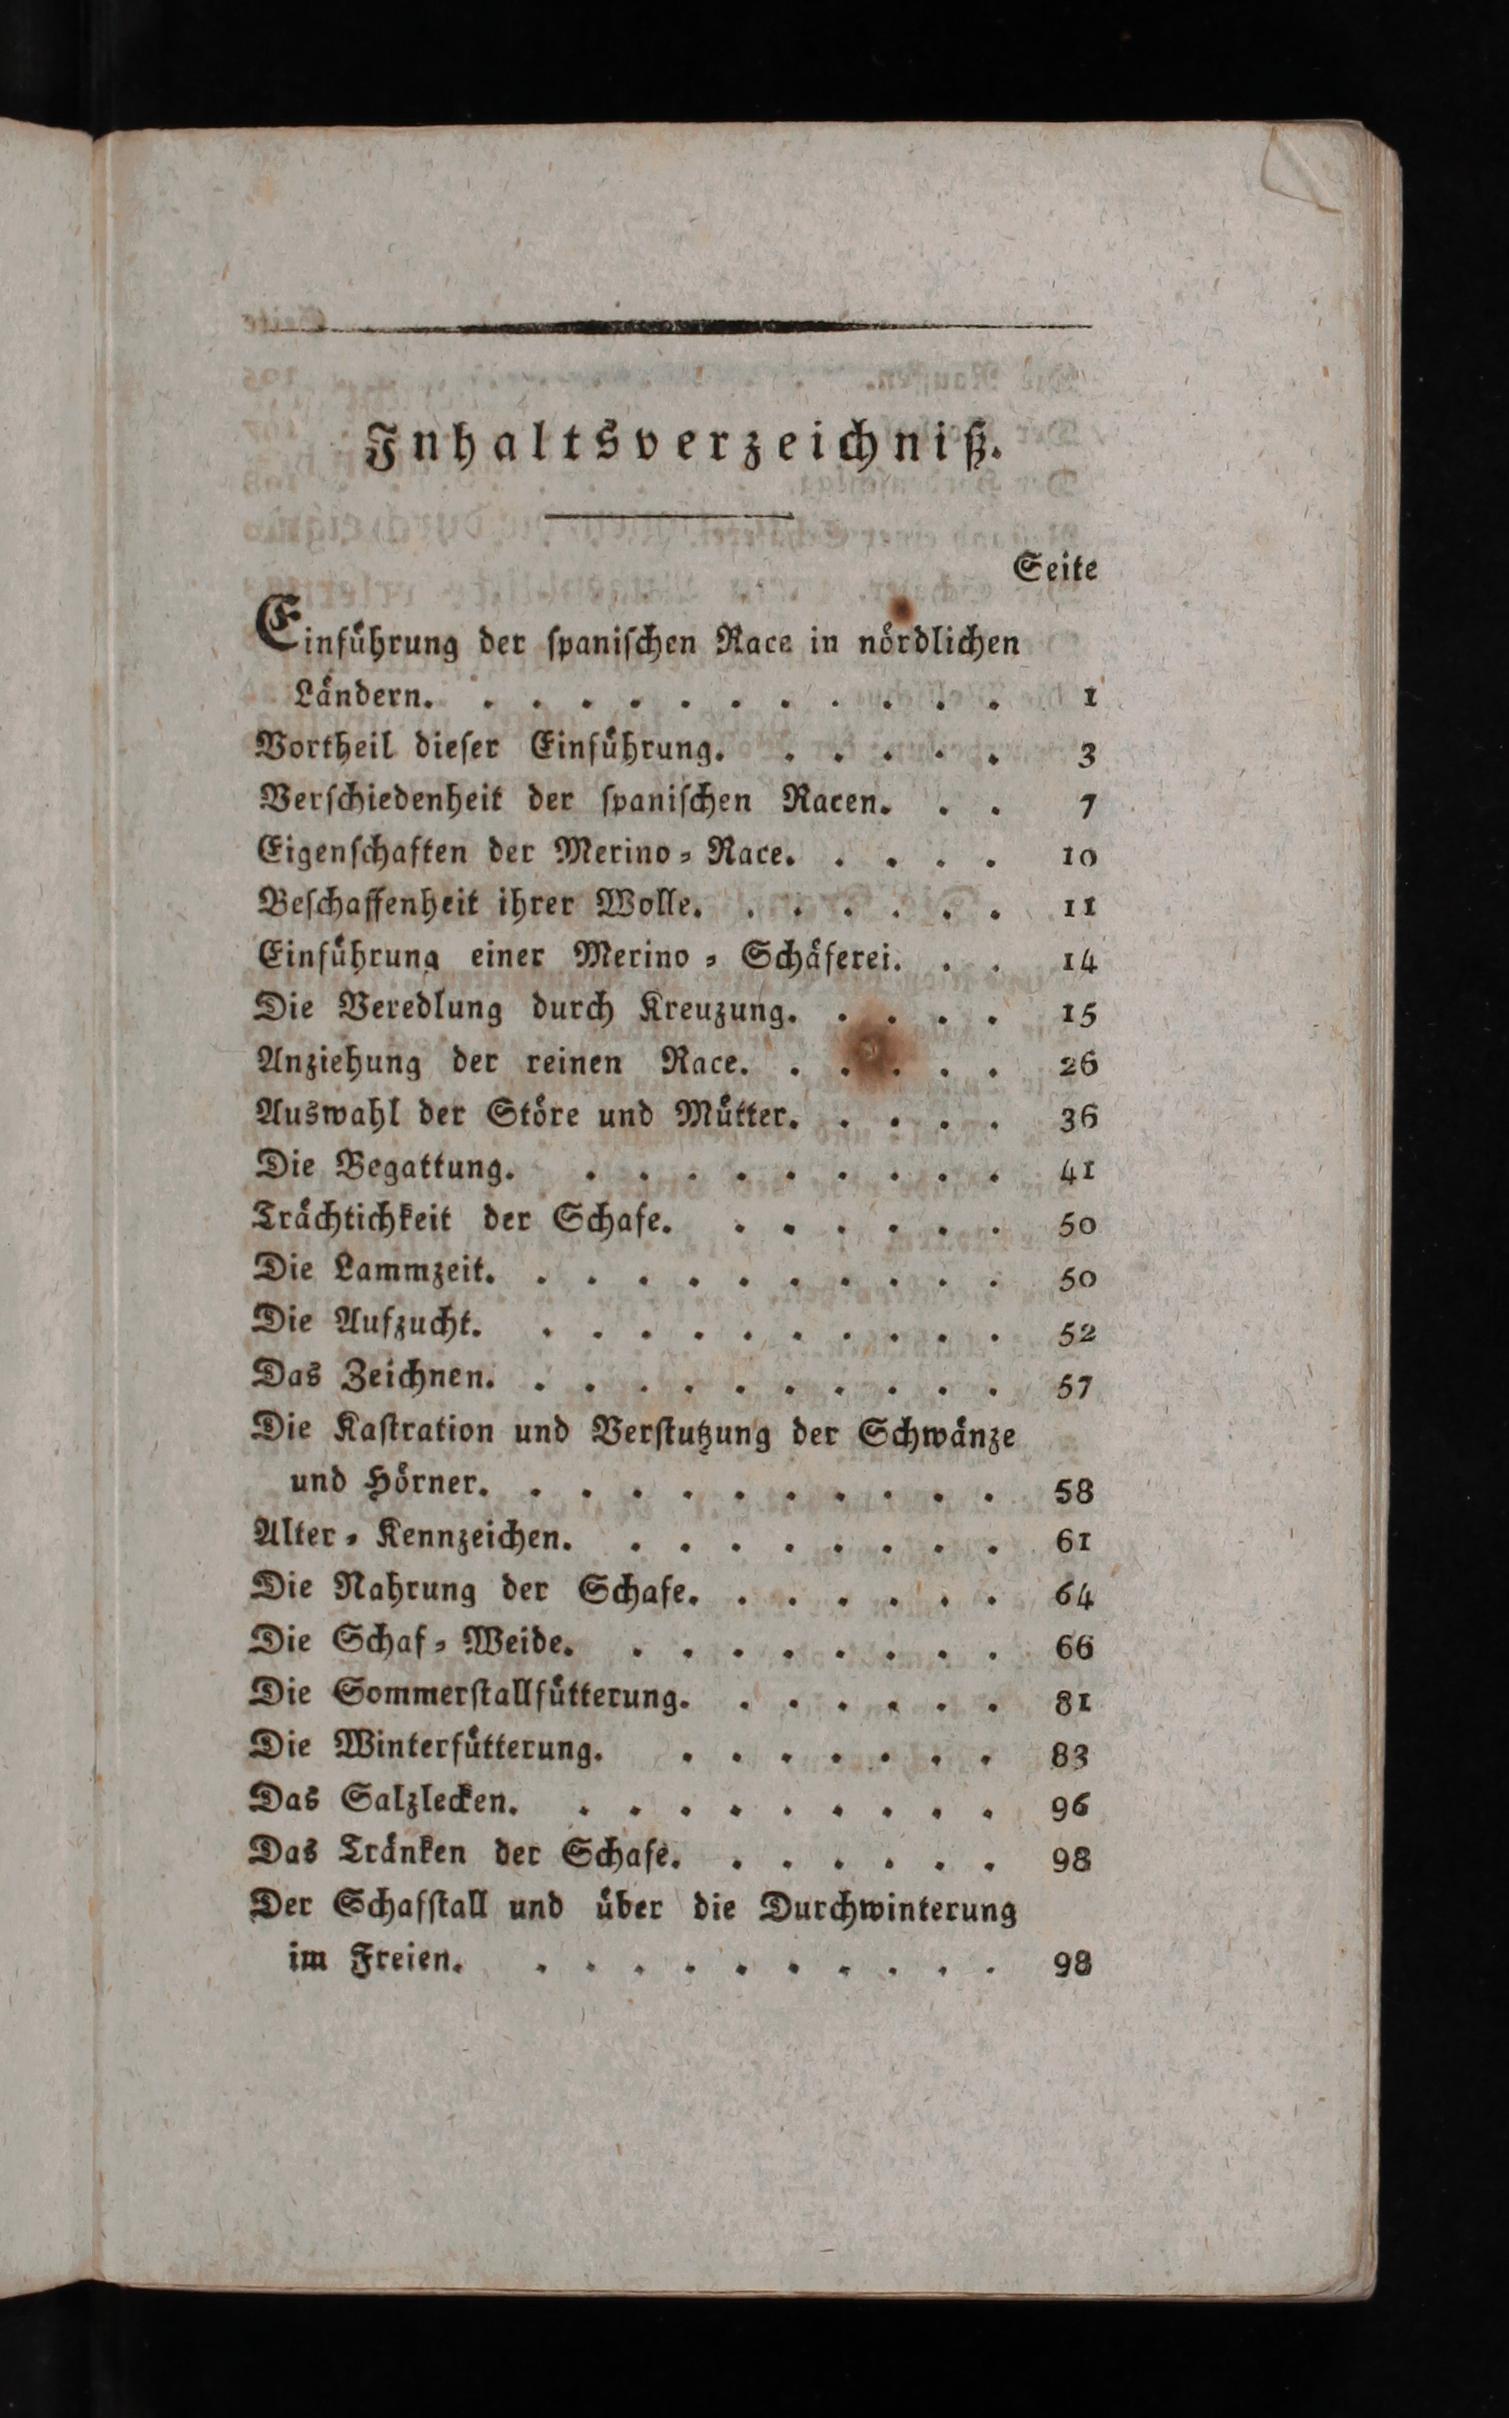 Inhaltsverzeichniß.
Seite
Einführung der ſpaniſchen Race in nördlichen
Ländern. . . . . . . . . . . . 1
Vortheil dieſer Einführung. . . . . . 3
Verſchiedenheit der ſpaniſchen Racen. . . 7
Eigenſchaften der Merino-Race. . . . . 10
Beſchaffenheit ihrer Wolle. . . . . . . 11
Einführung einer Merino-Schäferei. . . 14
Die Veredlung durch Kreuzung. . . . . 15
Anziehung der reinen Race. . . . . . 26
Auswahl der Störe und Mütter. . . . . 36
Die Begattung. . . . . . . . . . 41
Trächtichkeit der Schafe. . . . . . . 50
Die Lammzeit. . . . . . . . . . . 50
Die Aufzucht. . . . . . . . . . . 52
Das Zeichnen. . . . . . . . . . . 57
Die Kaſtration und Verſtutzung der Schwänze
und Hörner. . . . . . . . . . . 58
Alter-Kennzeichen. . . . . . . . . 61
Die Nahrung der Schafe. . . . . . . 64
Die Schaf-Weide. . . . . . . . . 66
Die Sommerſtallfütterung. . . . . . . 81
Die Winterfütterung. . . . . . . . 83
Das Salzlecken. . . . . . . . . . 96
Das Tränken der Schafe. . . . . . . 98
Der Schafſtall und über die Durchwinterung
im Freien. . . . . . . . . . . 98